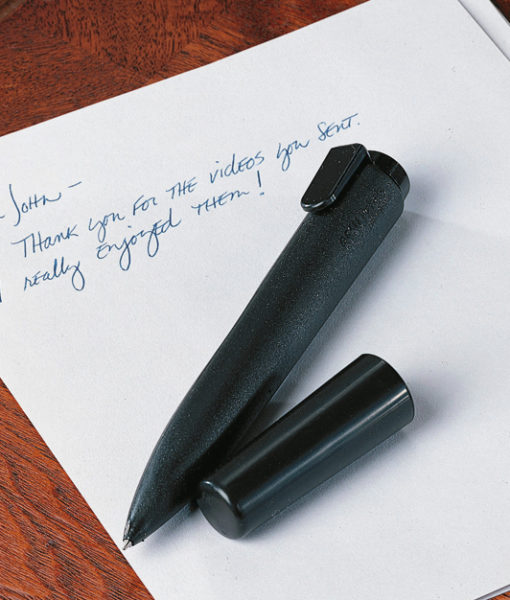 John –
Thank you for the videos you sent.
really enjoyed them!